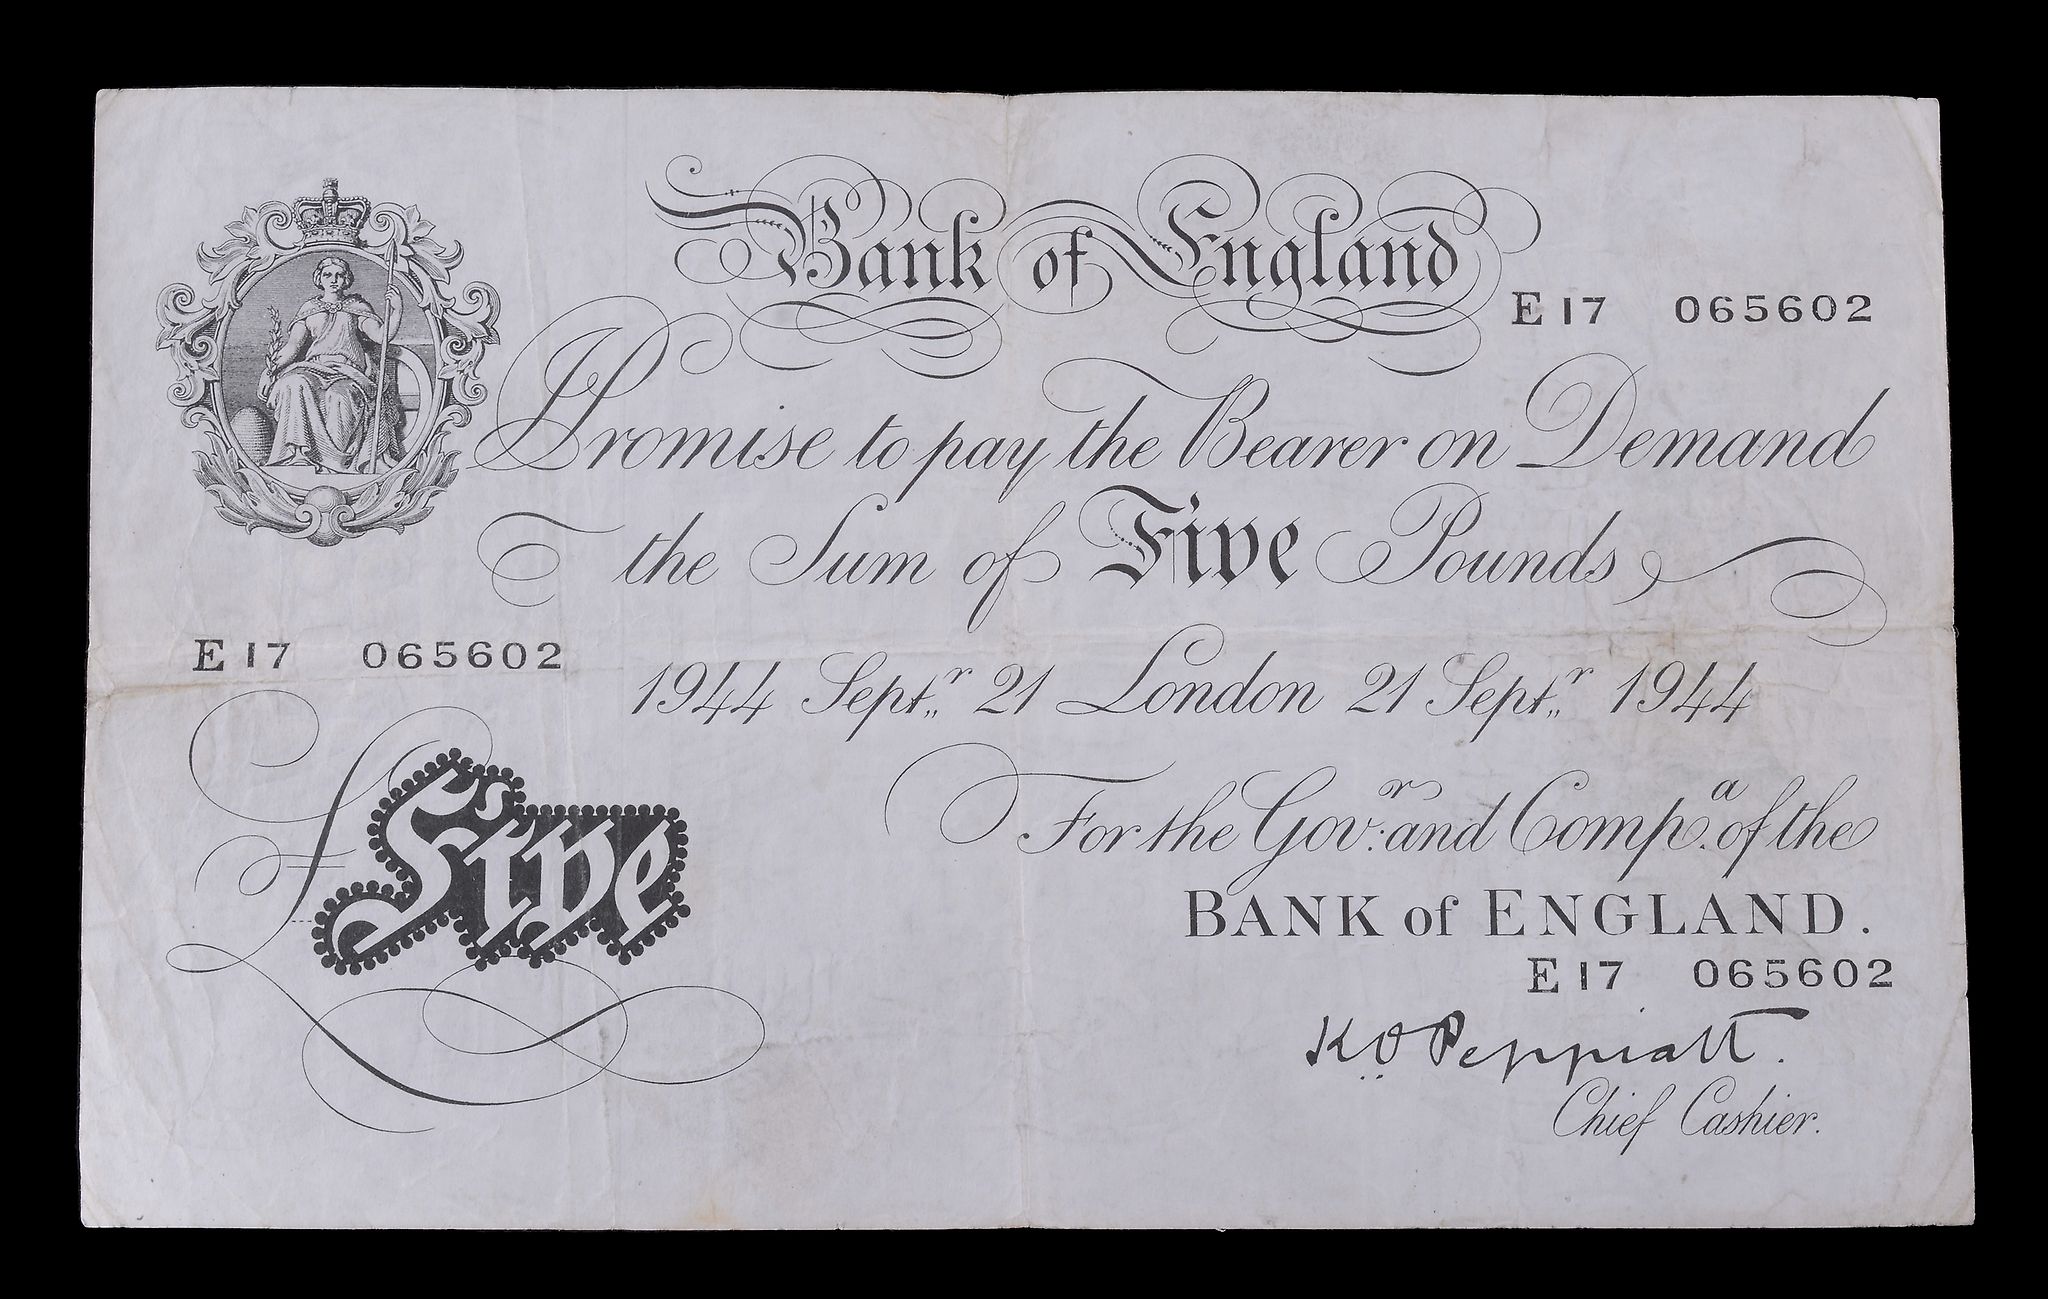 Bank of England
E 17 065602
I Promise to pay the Bearer on Demand
the Sum of Five Pounds
E 17 065602
1944 Sept.r 21 London 21 Sept.r 1944
£Five
For the Gov.r and Comp.a of the
BANK of ENGLAND.
E 17 065602
K.O. Peppiatt.
Chief Cashier.